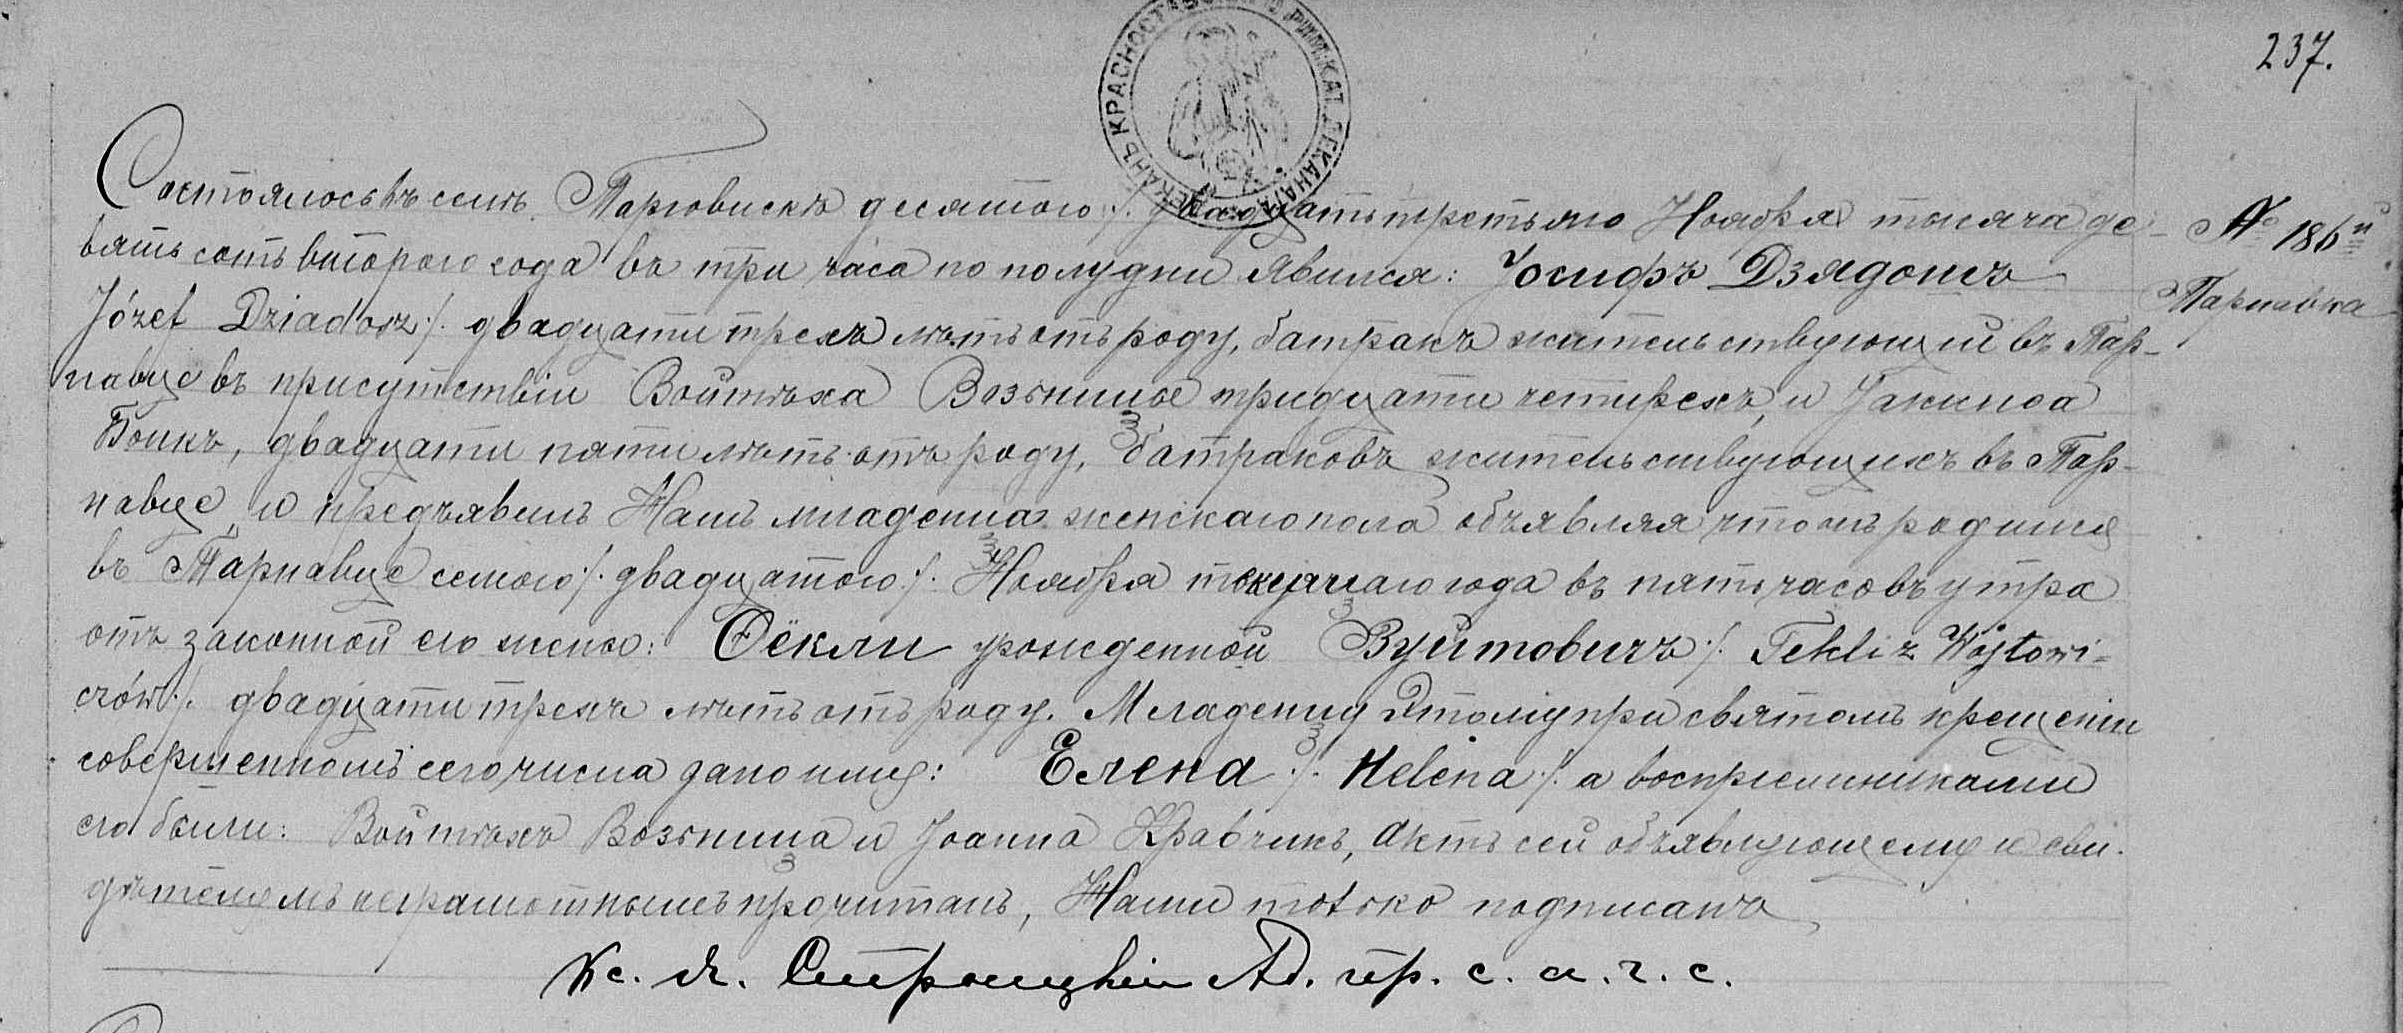 237.
ДЕКАНЪ КРАСНОСТАВСКАГО РИМ.КАТ. ДЕКАНАТА
Состоялось въ селѣ Тарговискѣ десятого /. двадцать третьяго Ноября тысяча де-
вятьсотъ второго года въ три часа по полудни Явился: Іосифъ Дзядошъ
Józef Dziadosz /. двадцати трехъ лѣтъ отъ роду, батракъ жительствующій въ Тар-
навце въ присутствіи Войтѣха Возьницы тридцати четырехъ, и Якима
двадцати пяти лѣтъ отъ роду, батраковъ жительствующихъ въ Тар-
навце, и предъявилъ Намъ младенца женскаго пола объявляя что онъ родился
въ Тарнавце семого /. двадцатого /. Ноября текущаго года въ пять часовъ утра
отъ законной его жены: Ѳёкли урожденной Вуйтовичъ /. Tekli z Wójtowi-
czów /. двадцати трехъ лѣтъ отъ роду. Младенцу Этому при святомъ крещеніи
совершенномъ сего числа дано имя: Елена /. Helena /. а воспріемниками
его были: Войтѣхъ Возьница и Іоанна Кравчикъ, Актъ сей объявляющему и сви-
дѣтелямъ неграмотнымъ прочитанъ, Нами только подписанъ
Кс. А. Ad. пр. с. а. г. с.
№ 186й
Тарнавка